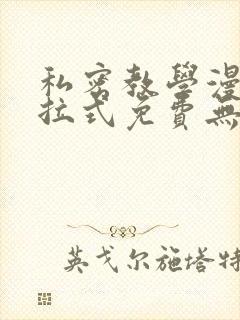 私密教學漫
拉式免費無
英戈尔施塔特